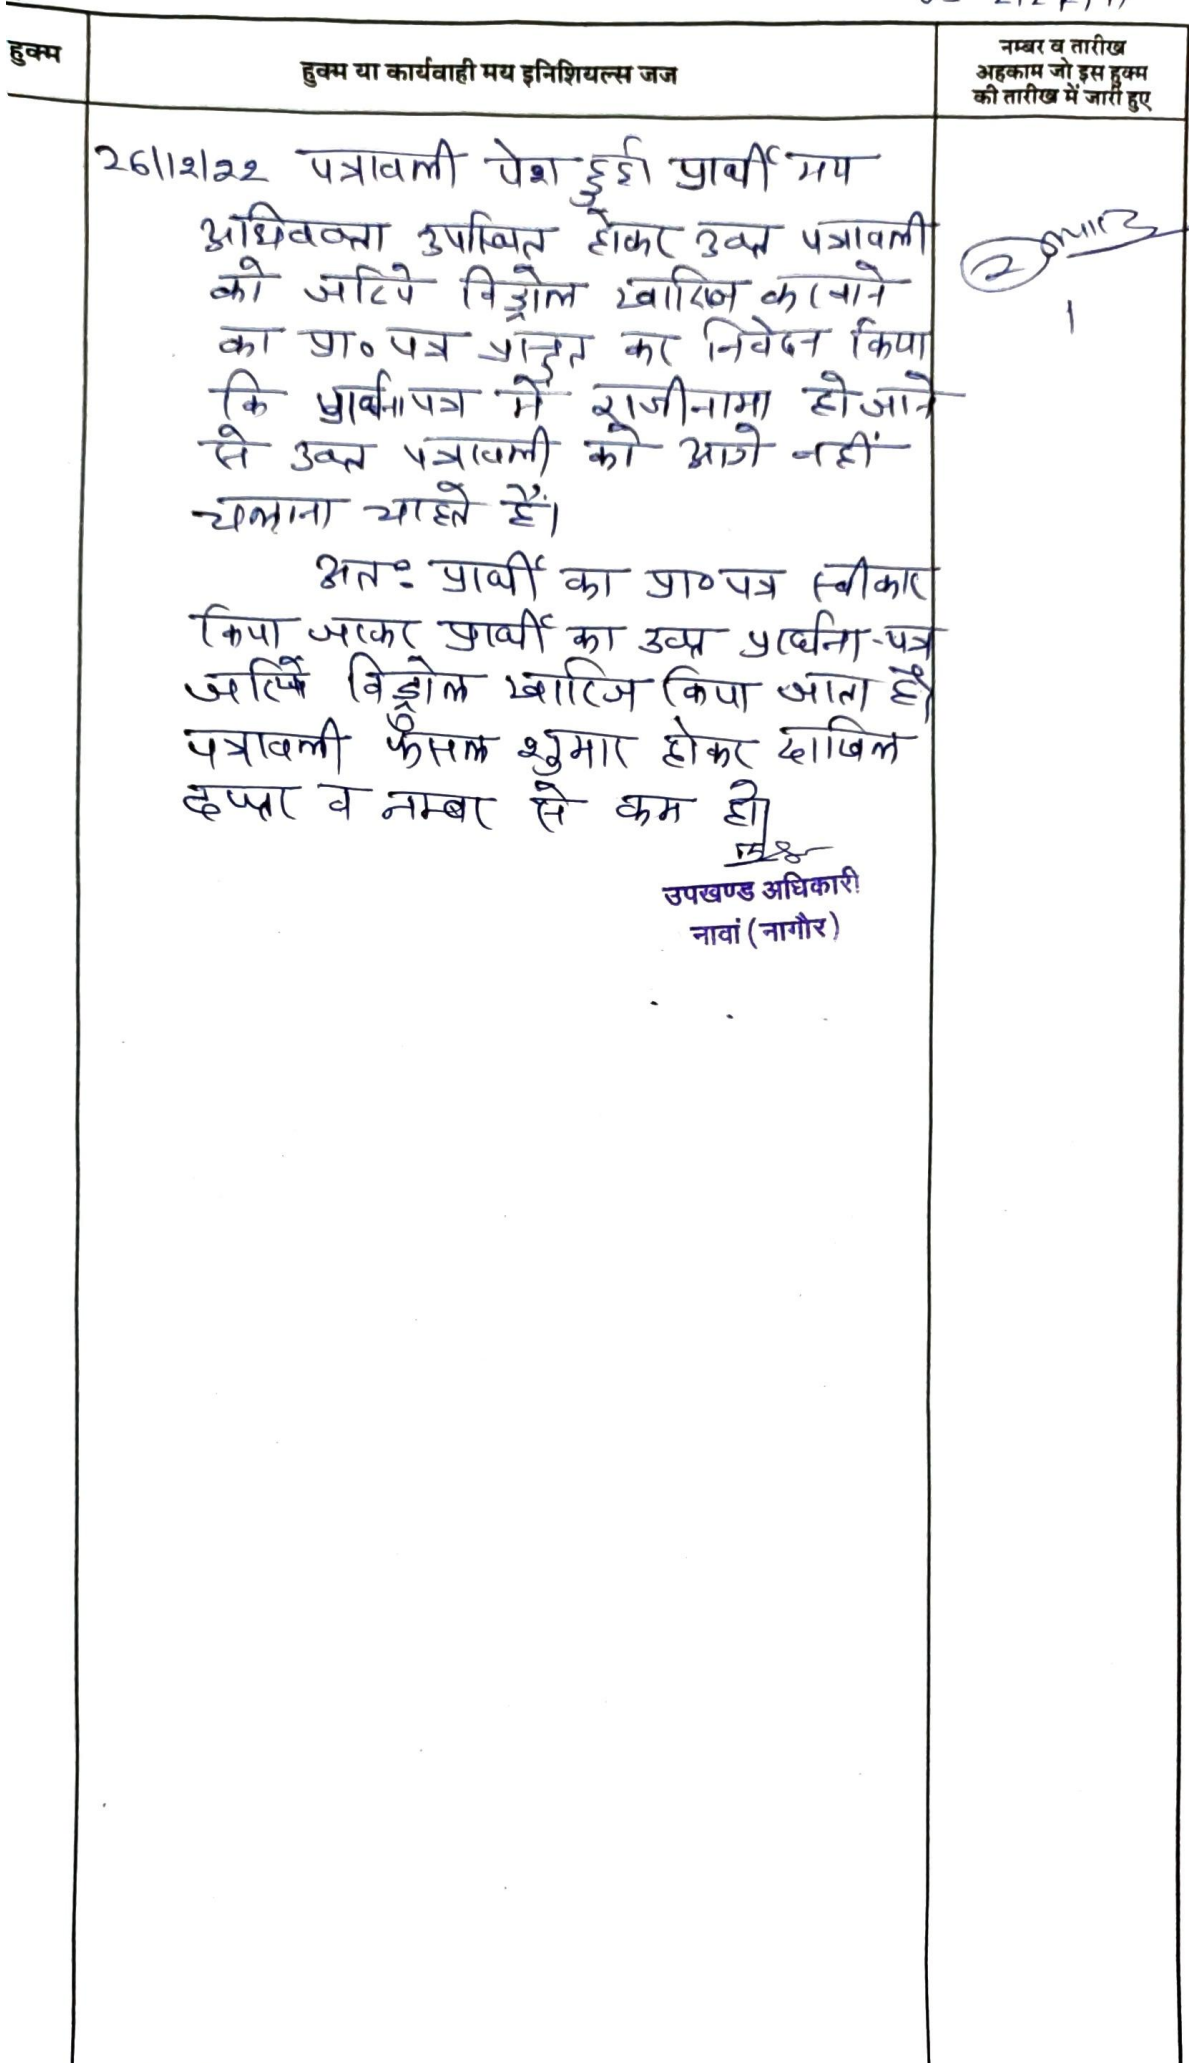 हुक्म
हुक्म या कार्यवाही मय इनिशियल्स जज
नम्बर व तारीख
अहकाम जो इस हुक्म
की तारीख में जारी हुए
26/12/22 पत्रावली पेश हुई। प्रार्थी मय
अधिवक्ता उपस्थित होकर उक्त पत्रावली
को जरिये विड्रोल खारिज करवाने
का प्रा० पत्र प्रस्तुत कर निवेदन किया
कि प्रार्थनापत्र में राजीनामा हो जाने
से उक्त पत्रावली को आगे नहीं
चलाना चाहते हैं।
अतः प्रार्थी का प्रा० पत्र स्वीकार
किया जाकर प्रार्थी का उक्त प्रार्थना-पत्र
जरिये विड्रोल खारिज किया जाता है।
पत्रावली फैसल शुमार होकर दाखिल
दफ्तर व नम्बर से कम हो।
उपखण्ड अधिकारी
नावां (नागौर)